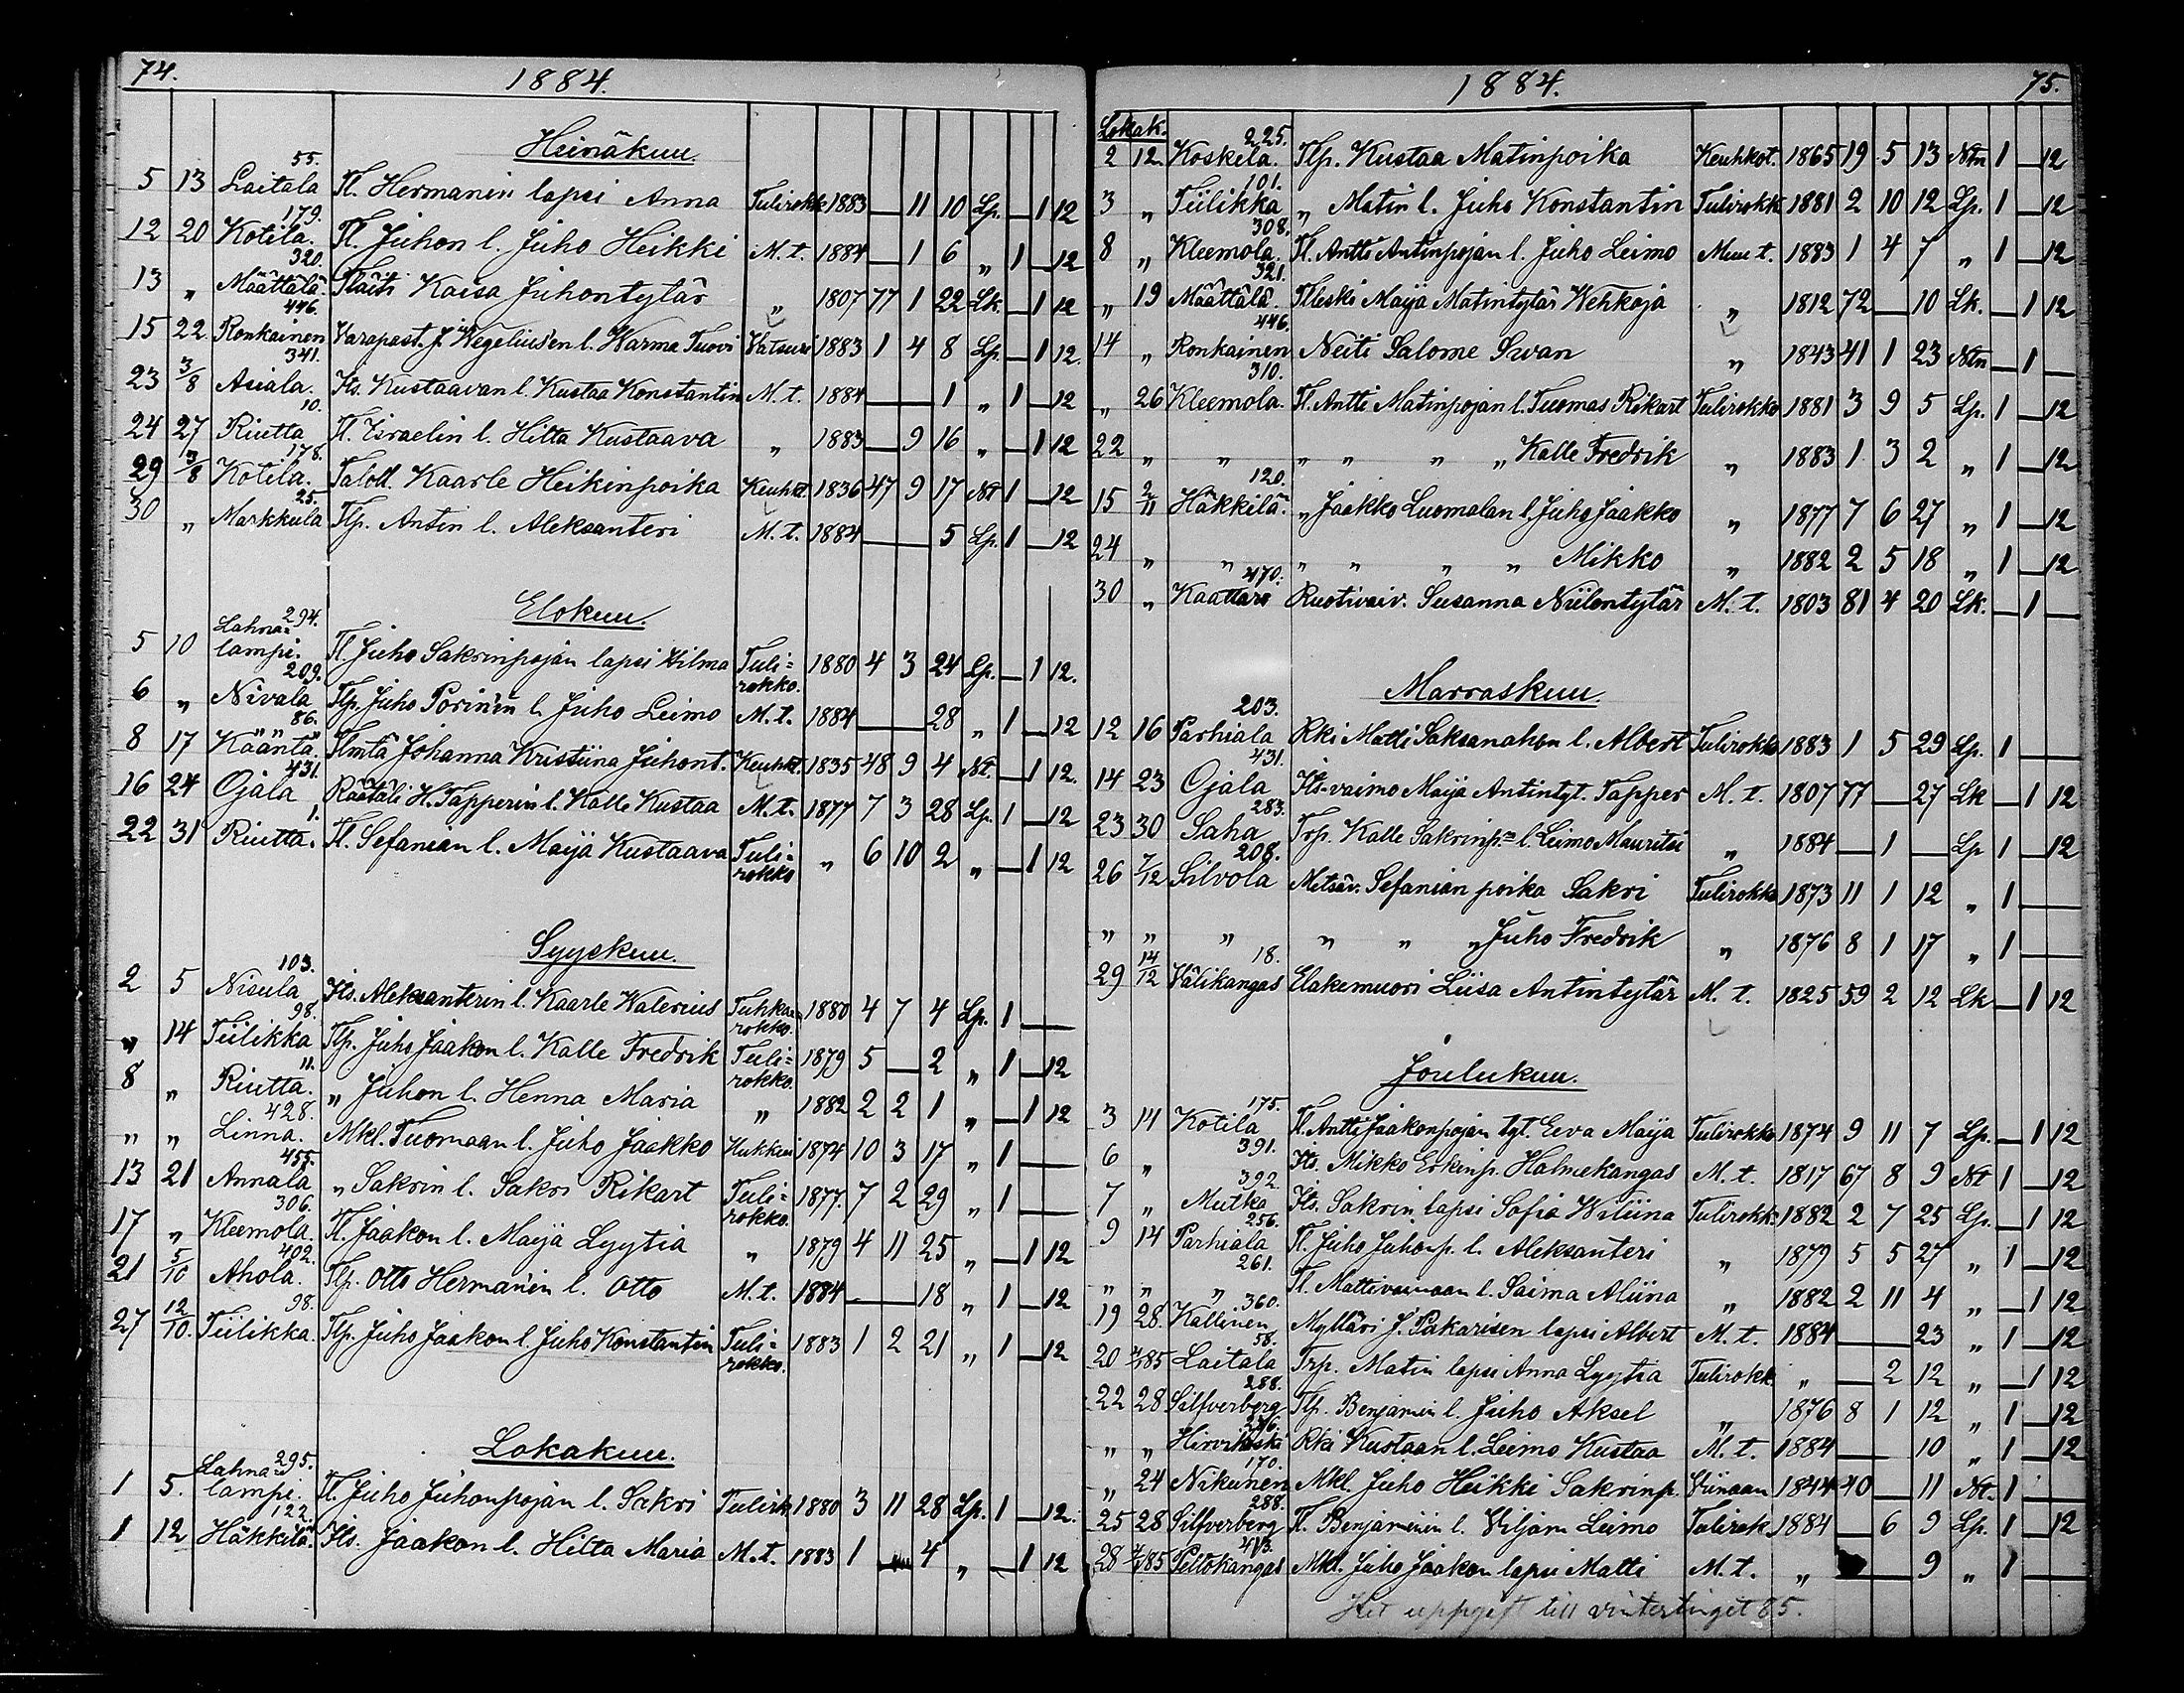 74. 1884.
Heinäkuu.
55.
5 13 Laitala Tl. Hermanin lapsi Anna Tulirokk. 1883 — 11 10 Lp. — 1 12
179.
12 20 Kotila. Tl. Juhon l. Juho Heikki M. t. 1884 — 1 6 „ 1 — 12
320.
13 „ Määttälä. Tläiti Kaisa Juhontytär „ 1807 77 1 22 Lk. — 1 12
446.
15 22. Ronkainen Varapast. J. Wegelius'en l. Warma Tuovi Vatsuri 1883 1 4 8 Lp. — 1 12.
341.
23 3/8 Asiala. Its. Kustaavan l. Kustaa Konstantin M. t. 1884 — — 1 „ 1 — 12
10.
24 27 Riutta Tl. Israelin l. Hilta Kustaava „ 1883 — 9 16 „ — 1 12
178.
29 3/8 Kotila. Taloll. Kaarle Heikinpoika Keuhkt. 1836 47 9 17 Nt 1 — 12
25.
30 „ Markkula Tlp. Antin l. Aleksanteri M. t. 1884 — — 5 Lp. 1 — 12
Elokuu.
Lahna= 294.
5 10 lampi. Tl. Juho Sakrinpojan lapsi Hilma Tuli= 1880 4 3 24 Lp. — 1 12.
rokko.
209.
6 „ Nivala Tlp. Juho Porin'en l. Juho Leimo M. t. 1884 — — 28 „ 1 — 12
86.
8 17 Kääntä. Tlmtä Johanna Kristiina Juhont. Keuhkt. 1835 48 9 4 Nt. — 1 12.
431.
16 24 Ojala Räätäli H. Tapperin l. Kalle Kustaa M. t. 1877 7 3 28 Lp. 1 — 12
1.
22 31 Riutta. Tl. Sefanian l. Maija Kustaava Tuli= „ 6 10 2 „ — 1 12
rokko
Syyskuu.
103.
2 5 Nisula Its. Aleksanterin l. Kaarle Walerius Tuhka= 1880 4 7 4 Lp. 1 —
rokko.
98.
„ 14 Tiilikka Tlp. Juho Jaakon l. Kalle Fredrik Tuli= 1879 5 — 2 „ 1 — 12
rokko.
11.
8 „ Riutta. „ Juhon l. Henna Maria „ 1882 2 2 1 „ — 1 12
428.
„ „ Linna. Mkl. Tuomaan l. Juho Jaakko Hukkui 1874 10 3 17 „ 1 —
455.
13 21 Annala „ Sakrin l. Sakri Rikart Tuli= 1877. 7 2 29 „ 1 —
rokko.
306.
17 „ Kleemola. Tl. Jaakon l. Maija Lyytia „ 1879 4 11 25 „ — 1 12
402.
21 5/10 Ahola. Tlp. Otto Herman'in l. Otto M. t. 1884 — — 18 „ 1 — 12
98.
27 12/10. Tiilikka. Tlp. Juho Jaakon l. Juho Konstantin Tuli= 1883 1 2 21 „ 1 — 12
rokko.
Lokakuu.
Lahna= 295.
1 5. lampi. Tl. Juho Juhonpojan l. Sakri Tulirk. 1880 3 11 28 Lp. 1 — 12.
122.
1 12 Häkkilä. Its. Jaakon l. Hilta Maria M. t. 1883 1 — 4 „ — 1 12
1884. 75.
Lokak.
225.
2 12. Koskela. Tlp. Kustaa Matinpoika Keuhkot. 1865 19 5 13 Ntn 1 — 12
101.
3 „ Tiilikka „ Matin l. Juho Konstantin Tulirokk. 1881 2 10 12 Lp. 1 — 12
308.
8 „ Kleemola. Tl. Antti Antinpojan l. Juho Leimo Muu t. 1883 1 4 7 „ 1 — 12
321.
„ 19 Määttälä. Tlleski Maija Matintytär Wehkoja „ 1812 72 — 10 Lk. — 1 12
446.
14 „ Ronkainen Neiti Salome Swan „ 1843 41 1 23 Ntn — 1 —
310.
„ 26 Kleemola. Tl. Antti Matinpojan l. Tuomas Rikart Tulirokko 1881 3 9 5 Lp. 1 — 12
22 „ „ „ „ „ „ Kalle Fredrik „ 1883 1 3 2 „ 1 — 12
120.
15 2/11 Häkkilä. „ Jaakko Luomalan l. Juho Jaakko „ 1877 7 6 27 „ 1 — 12
24 „ „ „ „ „ „ Mikko „ 1882 2 5 18 „ 1 — 12
470.
30 „ Kaattari Ruotivaiv. Susanna Niilontytär M. t. 1803 81 4 20 Lk. — 1 —
Marraskuu.
203.
12 16 Parhiala Rki Matti Saksanahon l. Albert Tulirokko 1883 1 5 29 Lp. 1 —
431.
14 23 Ojala Its.-vaimo Maija Antintyt. Tapper M. t. 1807 77 — 27 Lk — 1 12
283.
23 30 Saha Trp. Kalle Sakrinp:n l. Leimo Mauritsi „ 1884 — 1 — Lp 1 — 12
208.
26 7/12 Silvola Metsäv. Sefanian poika Sakri Tulirokko 1873 11 1 12 „ 1 —
„ „ „ „ „ „ Juho Fredrik „ 1876 8 1 17 „ 1 —
18.
29 14/12 Välikangas Eläkemuori Liisa Antintytär M. t. 1825 59 2 12 Lk — 1 12
Joulukuu.
175.
3 14 Kotila Tl. Antti Jaakonpojan tyt. Eeva Maija Tulirokko 1874 9 11 7 Lp. — 1 12
391.
6 „ Its. Mikko Erkinp. Halmekangas M. t. 1817 67 8 9 Nt 1 — 12
392.
7 „ Mutka Its. Sakrin lapsi Sofia Wiliina Tulirokk. 1882 2 7 25 Lp. — 1 12
256.
9 14 Parhiala Tl. Juho Juhonp. l. Aleksanteri „ 1879 5 5 27 „ 1 — 12
261.
„ „ „ Tl. Mattivainaan l. Saima Aliina „ 1882 2 11 4 „ — 1 12
360.
19 28. Kallinen Mylläri J. Pakarisen lapsi Albert M. t. 1884 — — 23 „ 1 — 12
58.
20 4/1 85 Laitala Trp. Matin lapsi Anna Lyytia Tulirokk. „ — 2 12 „ — 1 12
288.
22 28 Silfverberg Tlp. Benjamin l. Juho Aksel „ 1876 8 1 12 „ 1 — 12
„ „ Hirvikoski Rki Kustaan l. Leimo Kustaa M. t. 1884 — — 10 „ 1 — 12
170.
„ 24 Nikunen Mkl. Juho Heikki Sakrinp. Viinaan 1844 40 — 11 Nt. 1 —
288.
25 28 Silfverberg Tl. Benjaminin l. Viljam Leimo Tulirok. 1884 — 6 9 Lp. 1 — 12
413.
28 4/1 85 Peltokangas Mkl. Juho Jaakon lapsi Matti M. t. „ — 9 „ 1 —
uppgift till vintertinget 85.